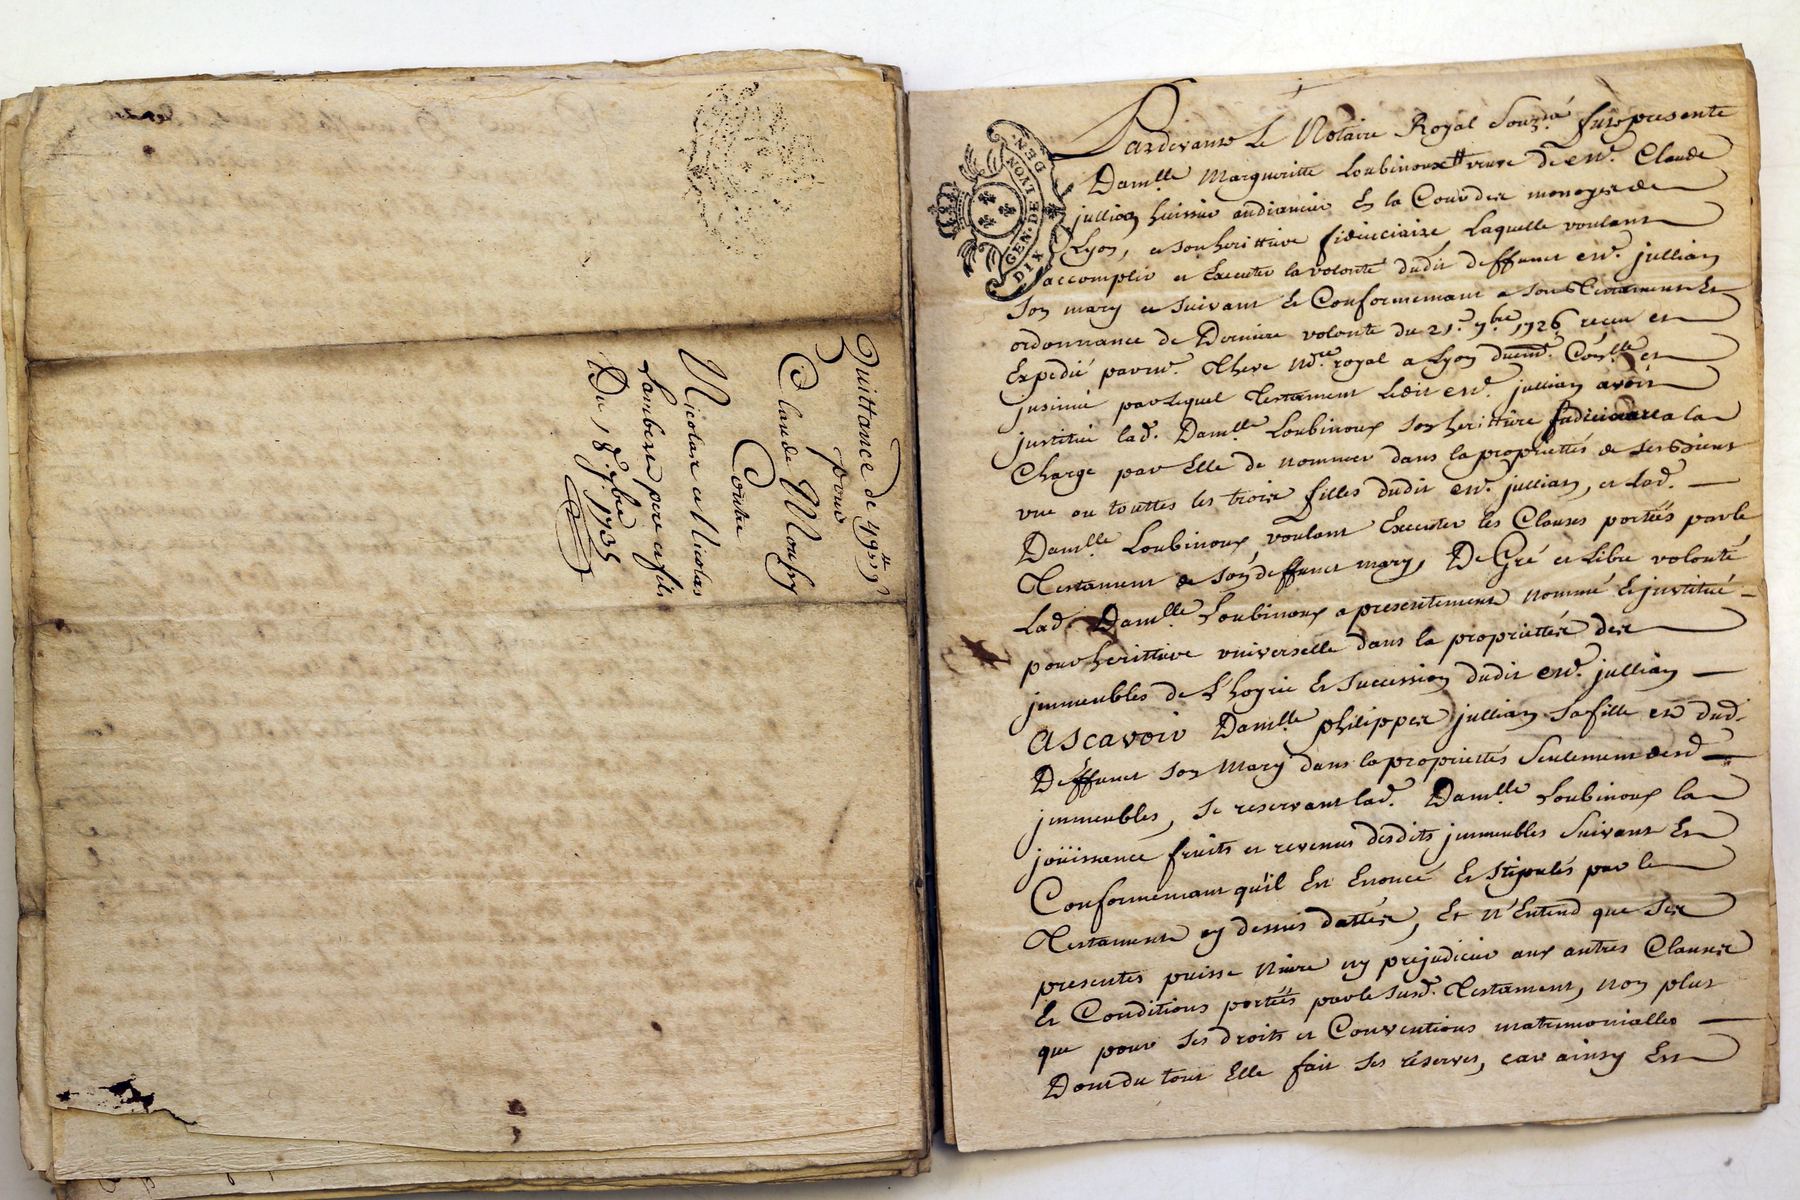 Quittance de 49# 9s
pour
Claude Mousy
Contre
Nicolas et Nicolas
Lambert pere et fils
Du 18e 9bre 1735
GEN. DE LYON
DIX DEN.
Pardevant Le Notaire Royal Souz.né fut presente
Dam.lle Margueritte Loubinoux veuve de Claude
jullien huissier audiancier En la Cour des monoyes de
Lyon, et sonherittiere fideiciaire Laquelle voulant
accomplir et Executer la volonté dudit deffunct jullien
Son mary et suivant Et Conformemant a son Testament Et
ordonnance de Derniere volonté du 21.e 7.bre 1726 receu et
Expedié par N.re royal a Lyon et
jnsinué par lequel Testament Ledit jullien avoit
jnstitué lad. Dam.lle Loubinoux son herittiere fideiciaire a la
Charge par Elle de nommer dans la propriettés de ses biens
vne ou touttes les trois filles dudit jullien, et Lad.
Dam.lle Loubinoux voulant Executer les Clauses portéés par le
Testament de son deffunct mary, De Gré et Libre volonté
Lad. Dam.lle Loubinoux a presentement nommé Et jnstitué
pour herittiere vniverselle dans la propriettés des
jmmeubles de L'hoyrie Et Succession dudit jullien
Ascavoir Dam.lle philippes jullien Sa fille et dud.
Deffunct son Mary dans la propriettés Seulement desd.
jmmeubles, se reservant lad. Dam.lle Loubinoux la
joüissance fruits et revenus desdits jmmeubles Suivant Et
Conformemant qu'il Est Enoncé Et stipulés par le
Testament cy dessus dattés, Et N'Entend que Ses
presentes puisse Nuire ny prejudicier aux autres Clauses
Et Conditions portéés par le Susd. Testament, non plus
que pour ses droits et Conventions matrimonialles
Dont du tout Elle fait ses réserves, car ainsy Est